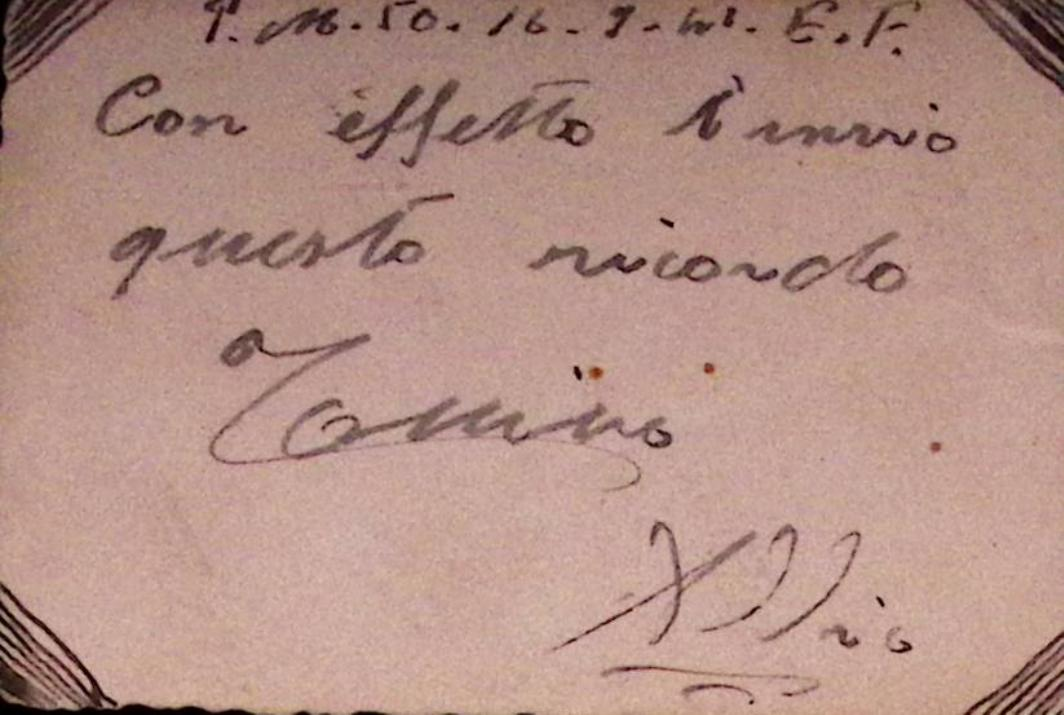 P. M. 50. 16. 9. 41. E. F.
Con effetto t'invio
questo ricordo
Tonino